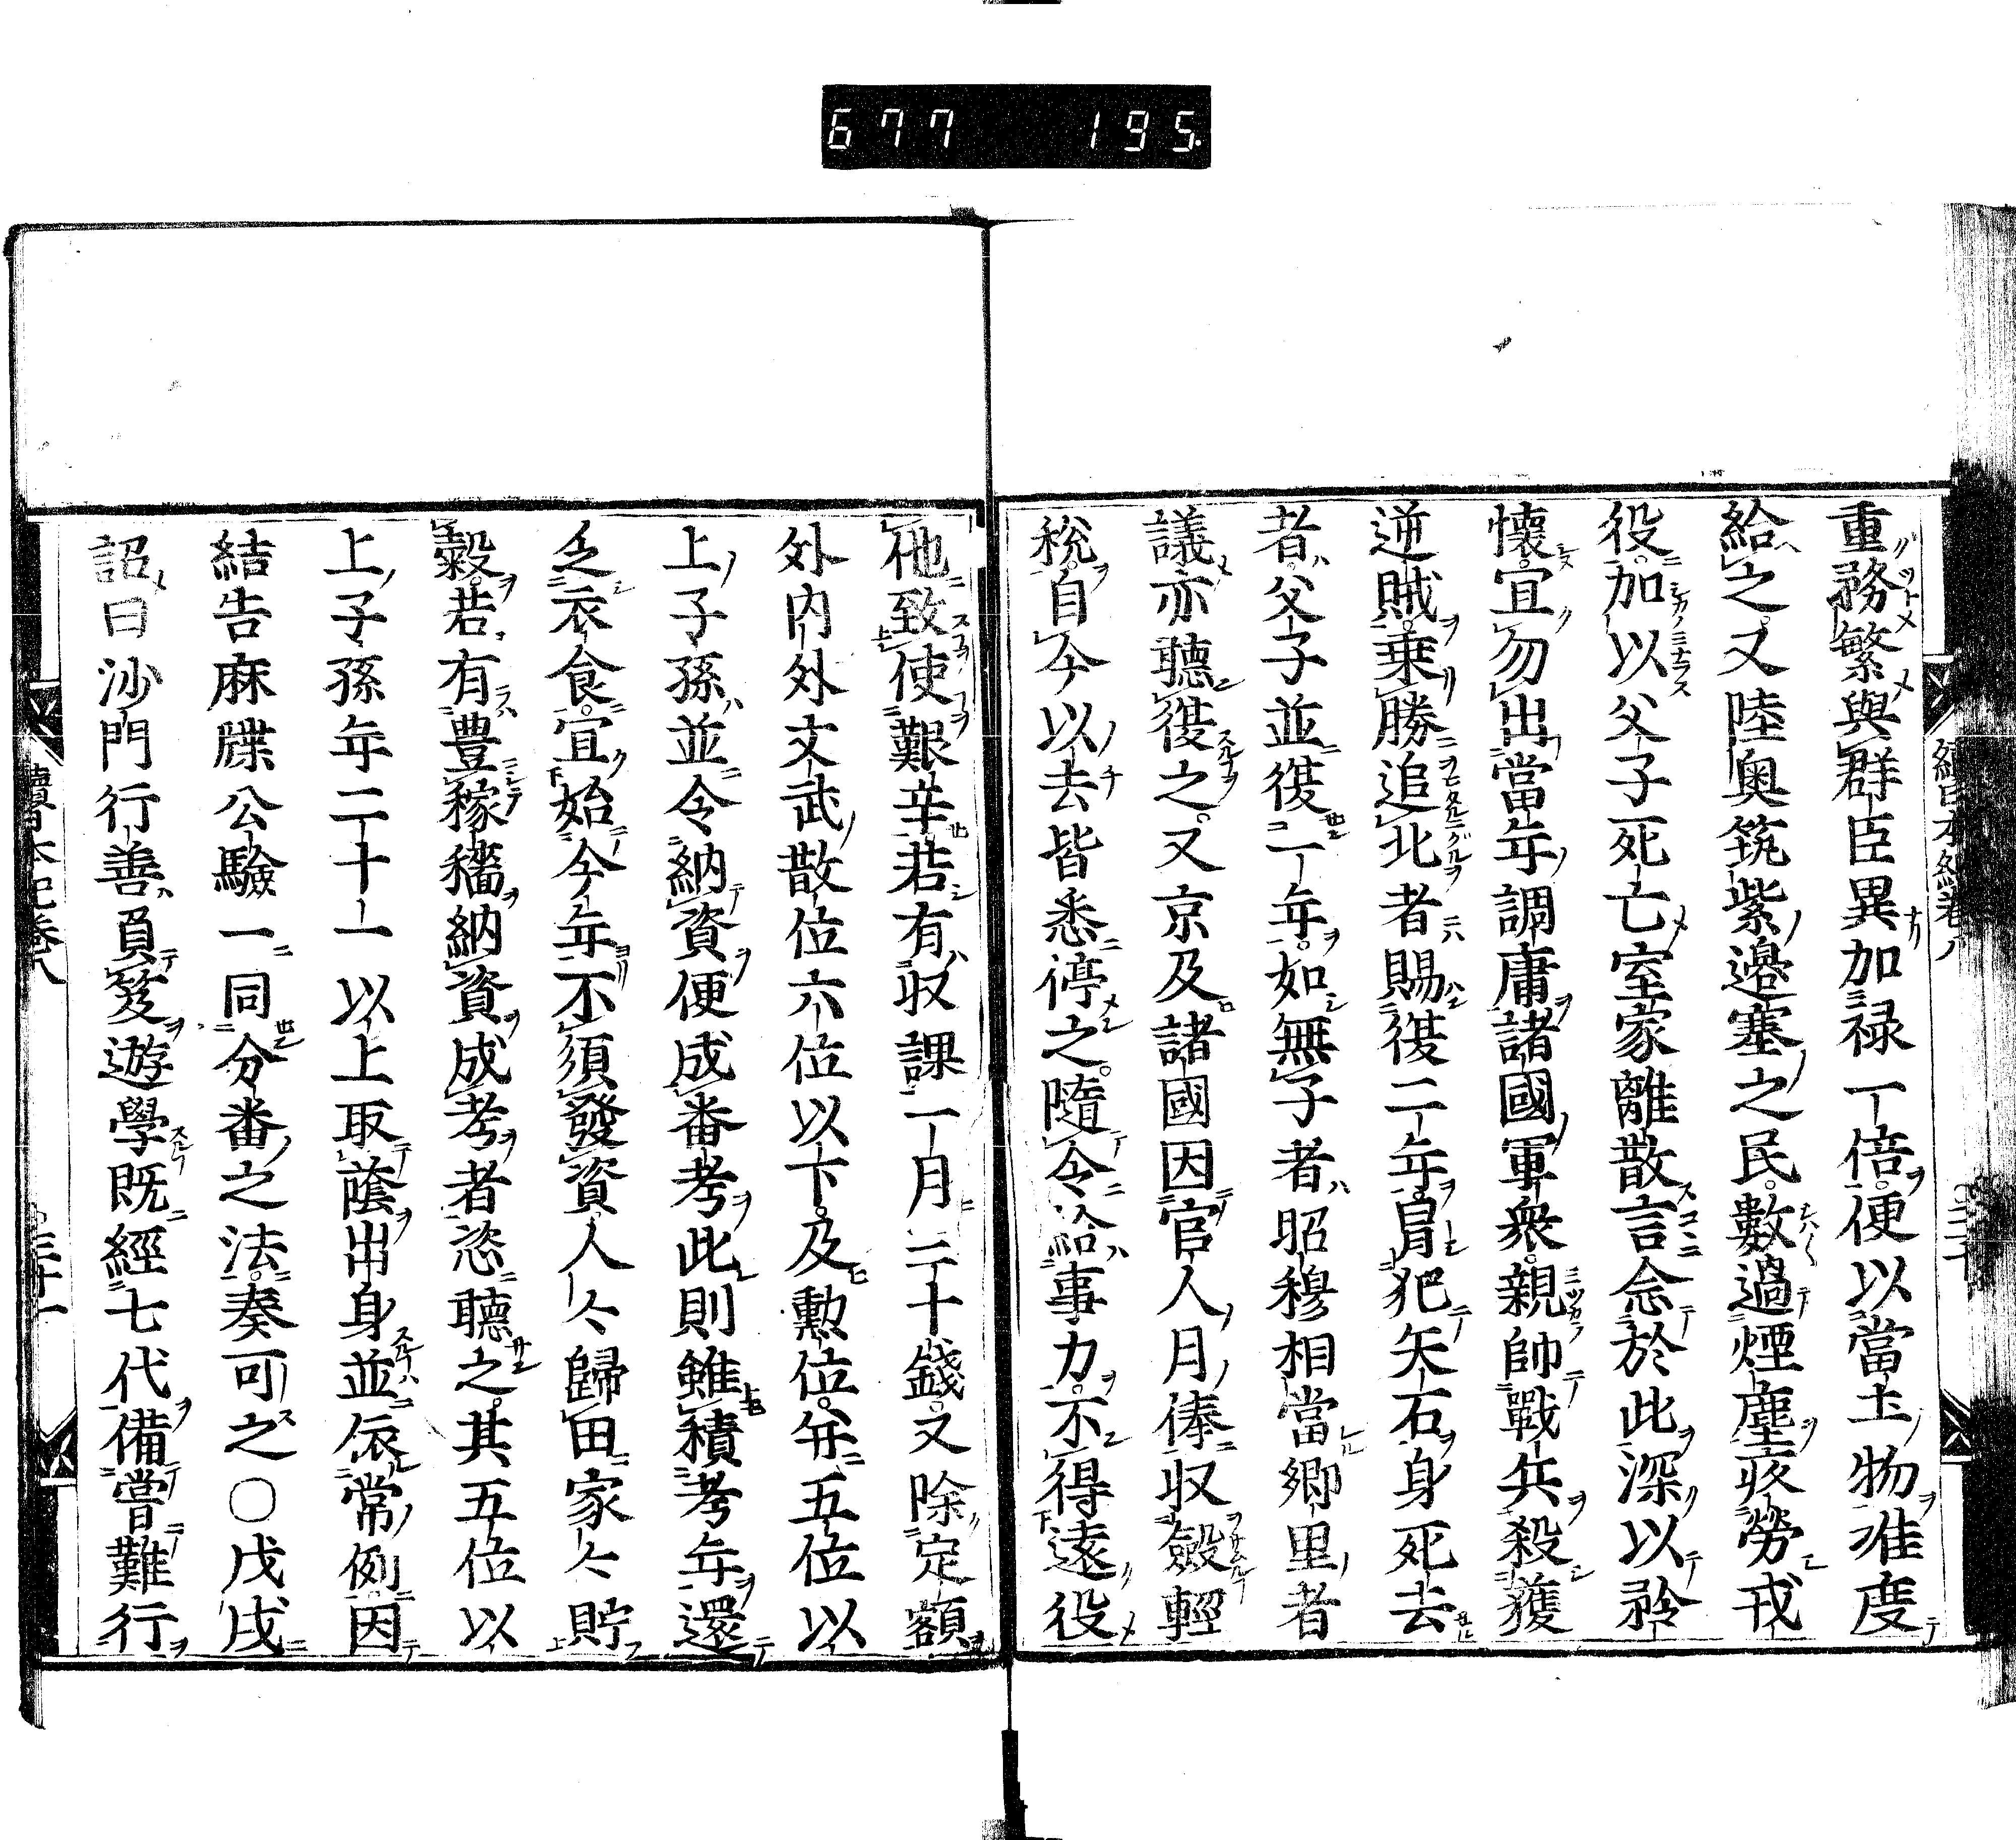 677 195
重務繁與群臣異加禄一倍便以當土物准度
給之又陸奥筑紫邊塞之民數過煙塵疲勞戎
役加以父子死亡室家離散言念於此深以矜
懷宜勿出當年調庸諸國軍衆親帥戰兵殺獲
逆賊乗勝追北者賜復二年冒犯矢石身死去
者父子並復一年如無子者昭穆相當郷里者
議亦聽復之又京及諸國因官人月俸収斂輕
税自今以去皆悉停之隨令給事力不得遠役
他致使艱辛若有収課一月三十錢又除定額
外内外文武散位六位以下及勲位并五位以
上子孫並令納資便成番考此則雖積考年還
乏衣食宜始今年不須發資人人歸田家家貯
穀若有豊稼穡納資成考者恣聽之其五位以
上子孫年二十一以上取蔭出身並依常例因
結告麻牒公驗一同分番之法奏可之○戊戌
詔曰沙門行善負笈遊學既經七代備嘗難行
續日本紀巻八 三十一